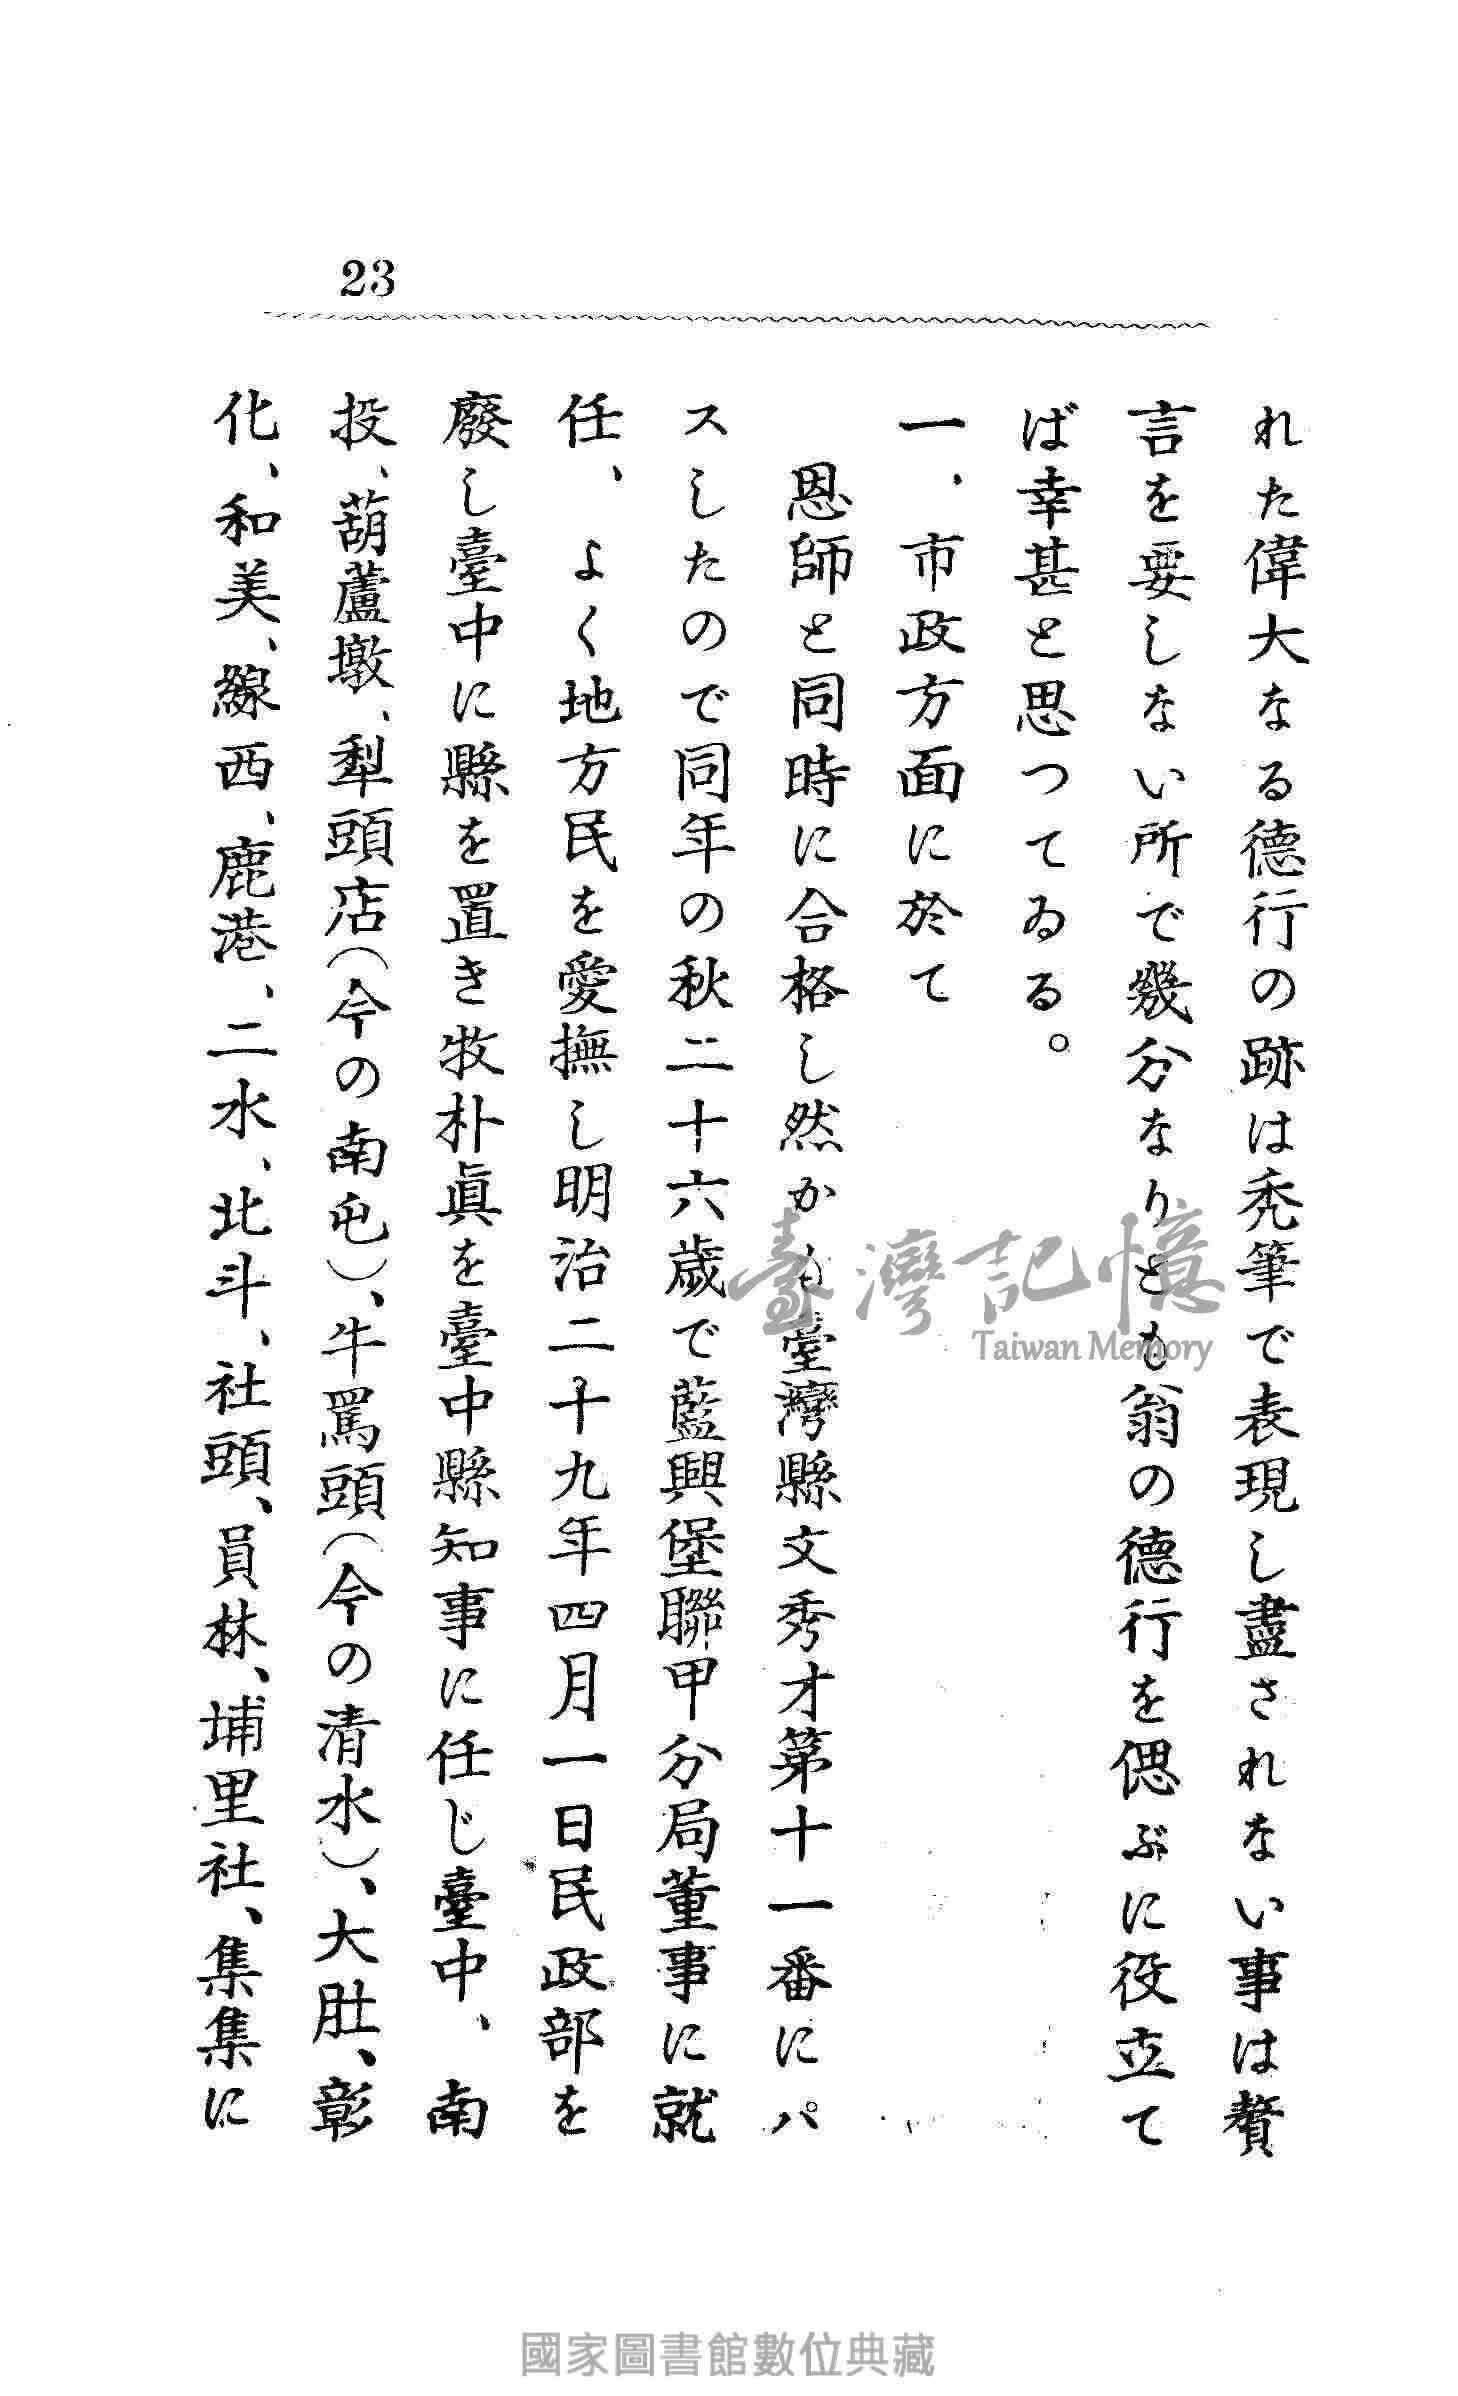 23
れた偉大なる德行の跡は禿筆で表現し盡されない事は贅
言を要しない所で幾分なりとも翁の德行を偲ぶに役立て
ば幸甚と思つてゐる。
一、市政方面に於て
恩師と同時に合格し然かも臺灣縣文秀才第十一番にパ
スしたので同年の秋二十六歲で藍興堡聯甲分局董事に就
任、よく地方民を愛撫し明治二十九年四月一日民政部を
廢し臺中に縣を置き牧朴眞を臺中縣知事に任じ臺中、南
投、葫蘆墩、犁頭店(今の南屯)、牛罵頭(今の清水)、大肚、彰
化、和美、線西、鹿港、二水、北斗、社頭、員林、埔里社、集集に
臺灣記憶
Taiwan Memory
國家圖書館數位典藏